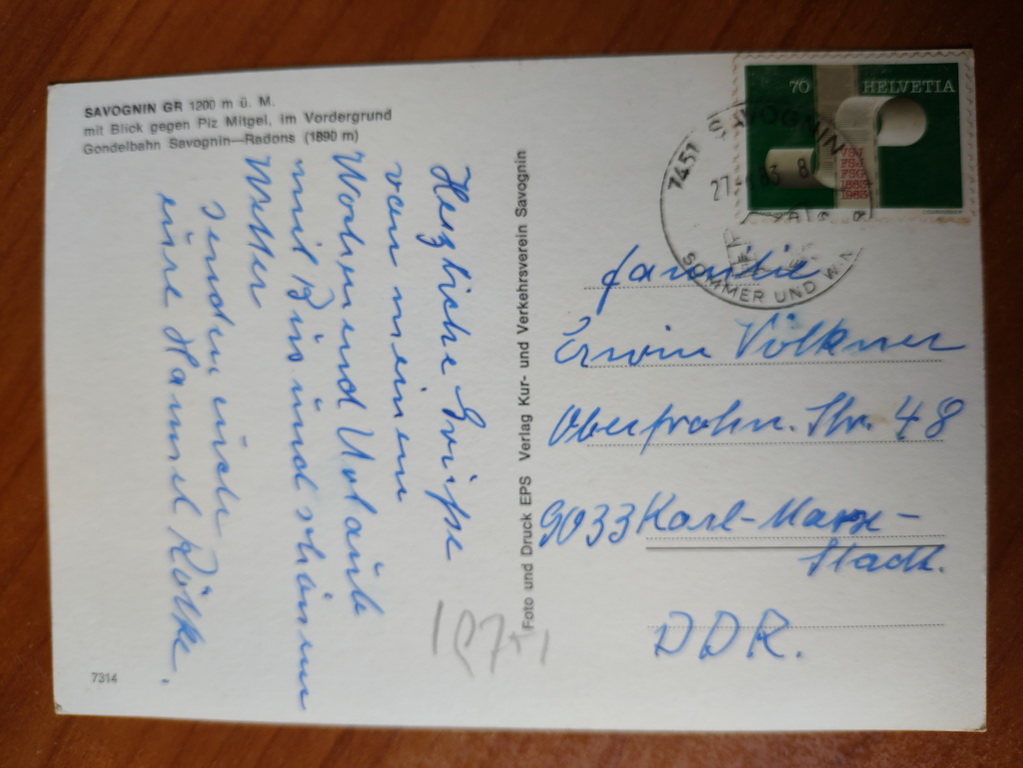 SAVOGNIN GR 1200 m ü. M.
mit Blick gegen Piz Mitgel, im Vordergrund
Gondelbahn Savognin—Radons (1890 m)
Herzliche Grüße
von meinem
Wochenend Urlaub
mit Birs und schönem
Wetter
senden euch
eure Hannel Kölke.
7314
Foto und Druck EPS Verlag Kur- und Verkehrsverein Savognin
70 HELVETIA
7451 SAVOGNIN
27. 83 8
SOMMER UND WIN
Familie
Erwin Völkner
Oberfrohn. Str. 48
9033 Karl-Marx-
Stadt.
DDR.